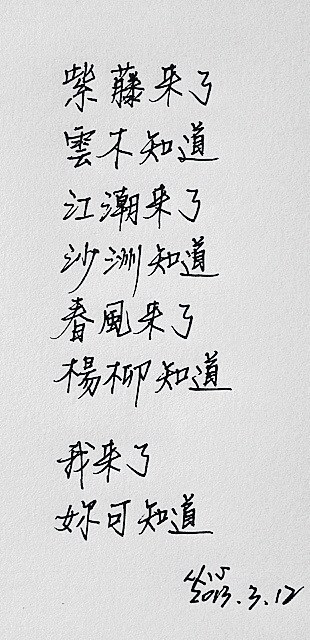 紫藤来了
雲木知道
江潮来了
沙洲知道
春風来了
楊柳知道
我来了
妳可知道
2013.3.12